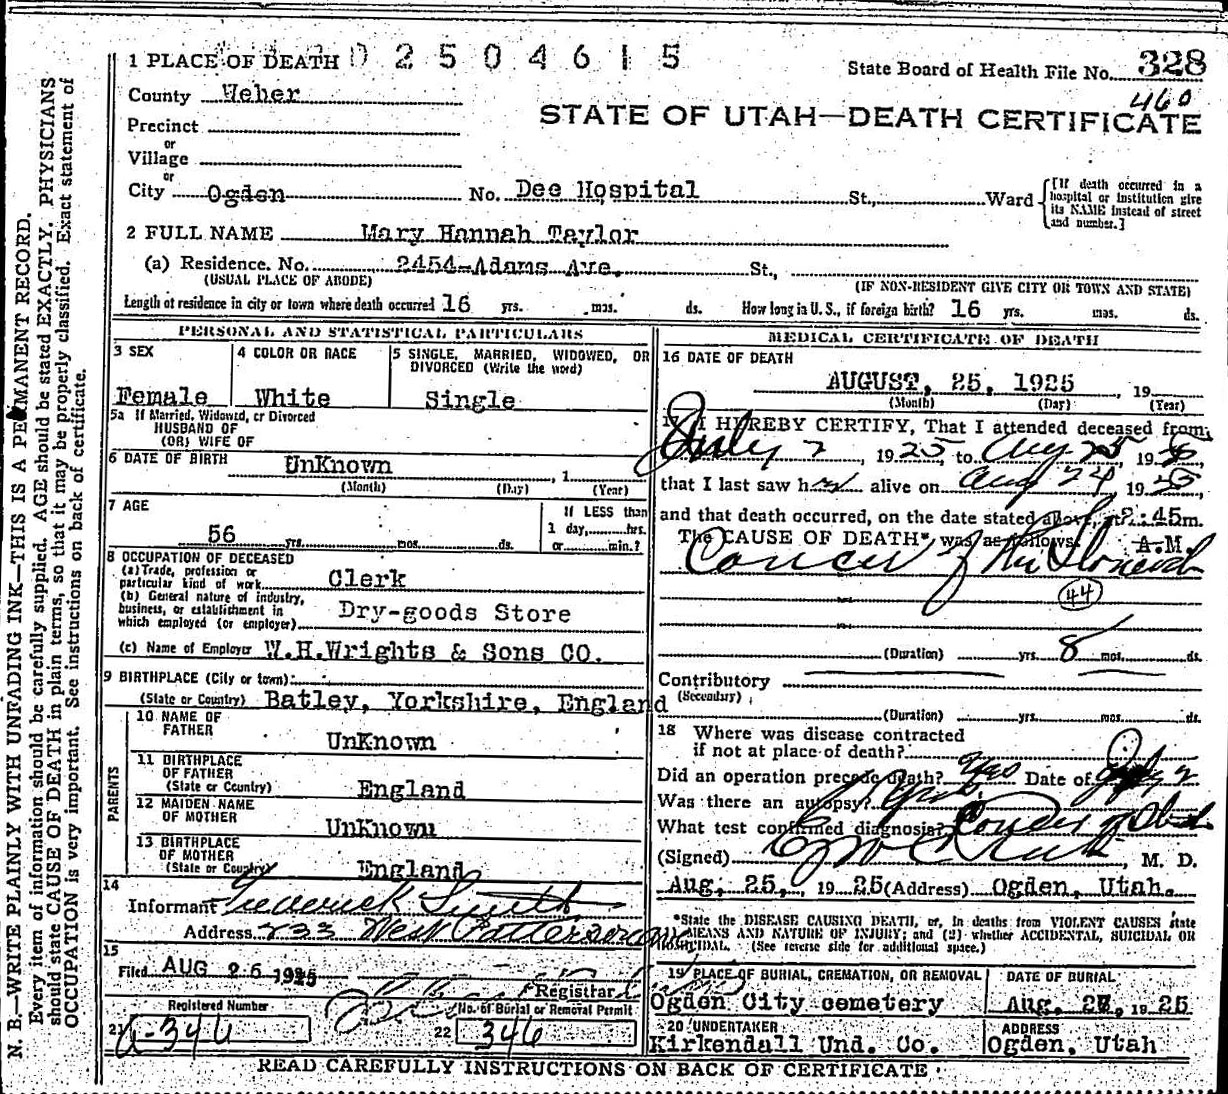 1 PLACE OF DEATH 02504615
State Board of Health File No. 328
460
County Weber
STATE OF UTAH—DEATH CERTIFICATE
Precinct
or
Village
or
City Ogden No. Dee Hospital St., Ward [If death occurred in a hospital or institution give its NAME instead of street and number.]
2 FULL NAME Mary Hannah Taylor
(a) Residence. No. 2454-Adams Ave. St.,
(USUAL PLACE OF ABODE) (IF NON-RESIDENT GIVE CITY OR TOWN AND STATE)
Length of residence in city or town where death occurred 16 yrs. mos. ds. How long in U. S., if foreign birth? 16 yrs. mos. ds.
PERSONAL AND STATISTICAL PARTICULARS
3 SEX
Female
4 COLOR OR RACE
White
5 SINGLE, MARRIED, WIDOWED, OR
DIVORCED (Write the word)
Single
5a If Married, Widowed, or Divorced
HUSBAND OF
(OR) WIFE OF
6 DATE OF BIRTH UnKnown , 1
(Month) (Day) (Year)
7 AGE
56 yrs. mos. ds.
If LESS than
1 day, hrs.
or min.?
8 OCCUPATION OF DECEASED
(a) Trade, profession or
particular kind of work Clerk
(b) General nature of industry,
business, or establishment in
which employed (or employer) Dry-goods Store
(c) Name of Employer W.H.Wrights & Sons CO.
9 BIRTHPLACE (City or town)
(State or Country) Batley, Yorkshire, England
PARENTS
10 NAME OF
FATHER UnKnown
11 BIRTHPLACE
OF FATHER
(State or Country) England
12 MAIDEN NAME
OF MOTHER UnKnown
13 BIRTHPLACE
OF MOTHER
(State or Country) England
14
Informant Frederick Smith
Address 233 West Patterson
15
Filed AUG 26 1925
Registrar
Registered Number
21 a-346
No. of Burial or Removal Permit
22 346
MEDICAL CERTIFICATE OF DEATH
16 DATE OF DEATH
AUGUST, 25, 1925 , 19
(Month) (Day) (Year)
17 I HEREBY CERTIFY, That I attended deceased from
July 2, 1925, to Aug 25, 1925
that I last saw her alive on Aug 24, 1925,
and that death occurred, on the date stated above, at 2:45m.
The CAUSE OF DEATH* was as follows: A.M.
Cancer of the Stomach
44
(Duration) yrs. 8 mos. ds.
Contributory
(Secondary)
(Duration) yrs. mos. ds.
18 Where was disease contracted
if not at place of death?
Did an operation precede death? Yes Date of July 2
Was there an autopsy?
What test confirmed diagnosis?
(Signed) , M. D.
Aug, 25, , 19 25 (Address) Ogden, Utah.
*State the DISEASE CAUSING DEATH, or, in deaths from VIOLENT CAUSES state
MEANS AND NATURE OF INJURY; and (2) whether ACCIDENTAL, SUICIDAL OR
HOMICIDAL. (See reverse side for additional space.)
19 PLACE OF BURIAL, CREMATION, OR REMOVAL
Ogden City cemetery
DATE OF BURIAL
Aug, 28, 19 25
20 UNDERTAKER
Kirkendall Und. Co.
ADDRESS
Ogden, Utah
READ CAREFULLY INSTRUCTIONS ON BACK OF CERTIFICATE
N. B.—WRITE PLAINLY WITH UNFADING INK—THIS IS A PERMANENT RECORD.
Every item of information should be carefully supplied. AGE should be stated EXACTLY. PHYSICIANS
should state CAUSE OF DEATH in plain terms, so that it may be properly classified. Exact statement of
OCCUPATION is very important. See instructions on back of certificate.